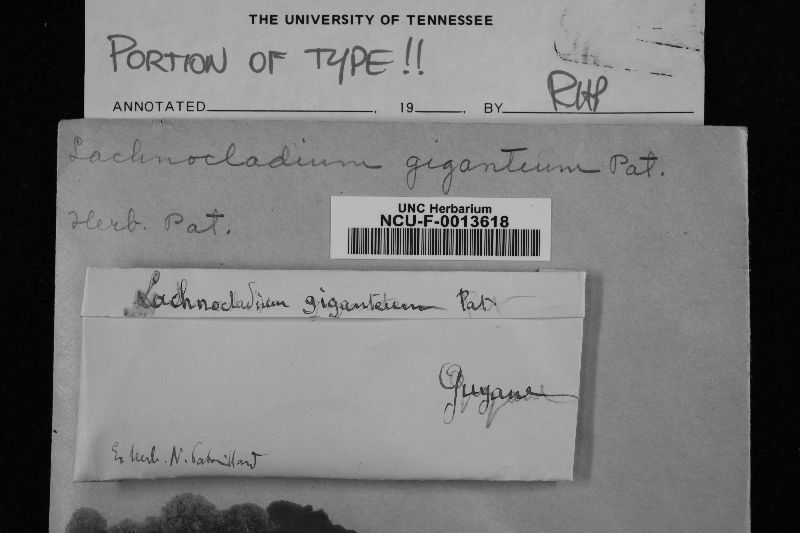 THE UNIVERSITY OF TENNESSEE
PORTION OF TYPE!!
ANNOTATED , 19 , BY RHP
Lachnocladium giganteum Pat.
Herb. Pat.
UNC Herbarium
NCU-F-0013618
Lachnocladium giganteum Pat.
Guyane
Ex herb. N. Patouillard